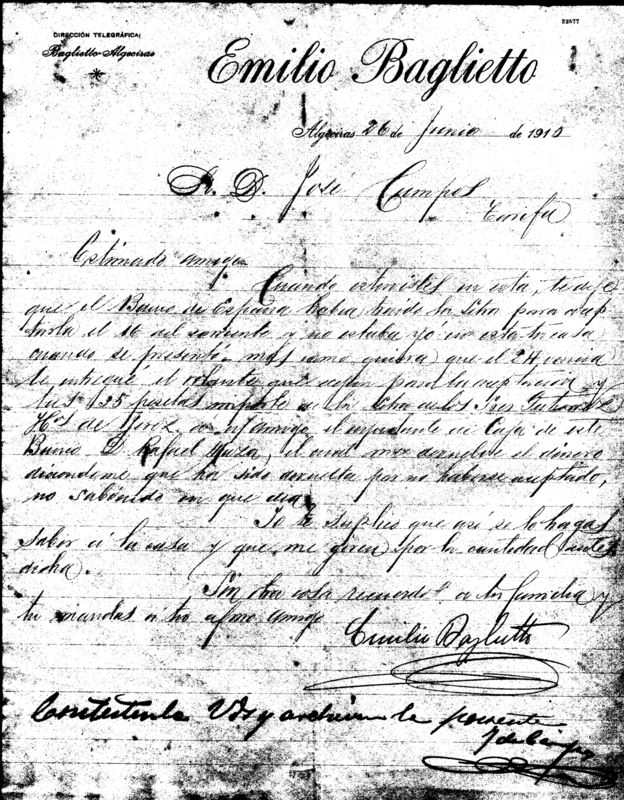 32577
DIRECCIÓN TELEGRÁFICA:
Baglietto-Algeciras
Emilio Baglietto
Algeciras 26 de Junio de 1910
Sr. D. José Campos
Tarifa
Estimado amigo
Cuando estuvistes en esta, te dije
que el Banco de España habia traido la letra para acep
tarla el 16 del corriente y no estaba yó en esta tu casa
cuando se presentó. mas como quiera que el 24 vencia
le entregué el volante que dejan para la aceptación y
las 125 pesetas importe de la letra de los Tres
Hos de Jerez, a mi amigo el ayudante de Caja de este
Banco D. Rafael Muza, el cual me devuelve el dinero
diciendome que ha sido devuelta por no haberse aceptado,
no sabiendo en que dia.
Yo te suplico que así se lo hagas
saber á la casa y que me giren por la cantidad antes
dicha.
Sin otra cosa recuerdos a tu familia y
tu mandas á tu afmo amigo
Emilio Baglietto
Contestenle Vds y archiven la presente
J de Campos